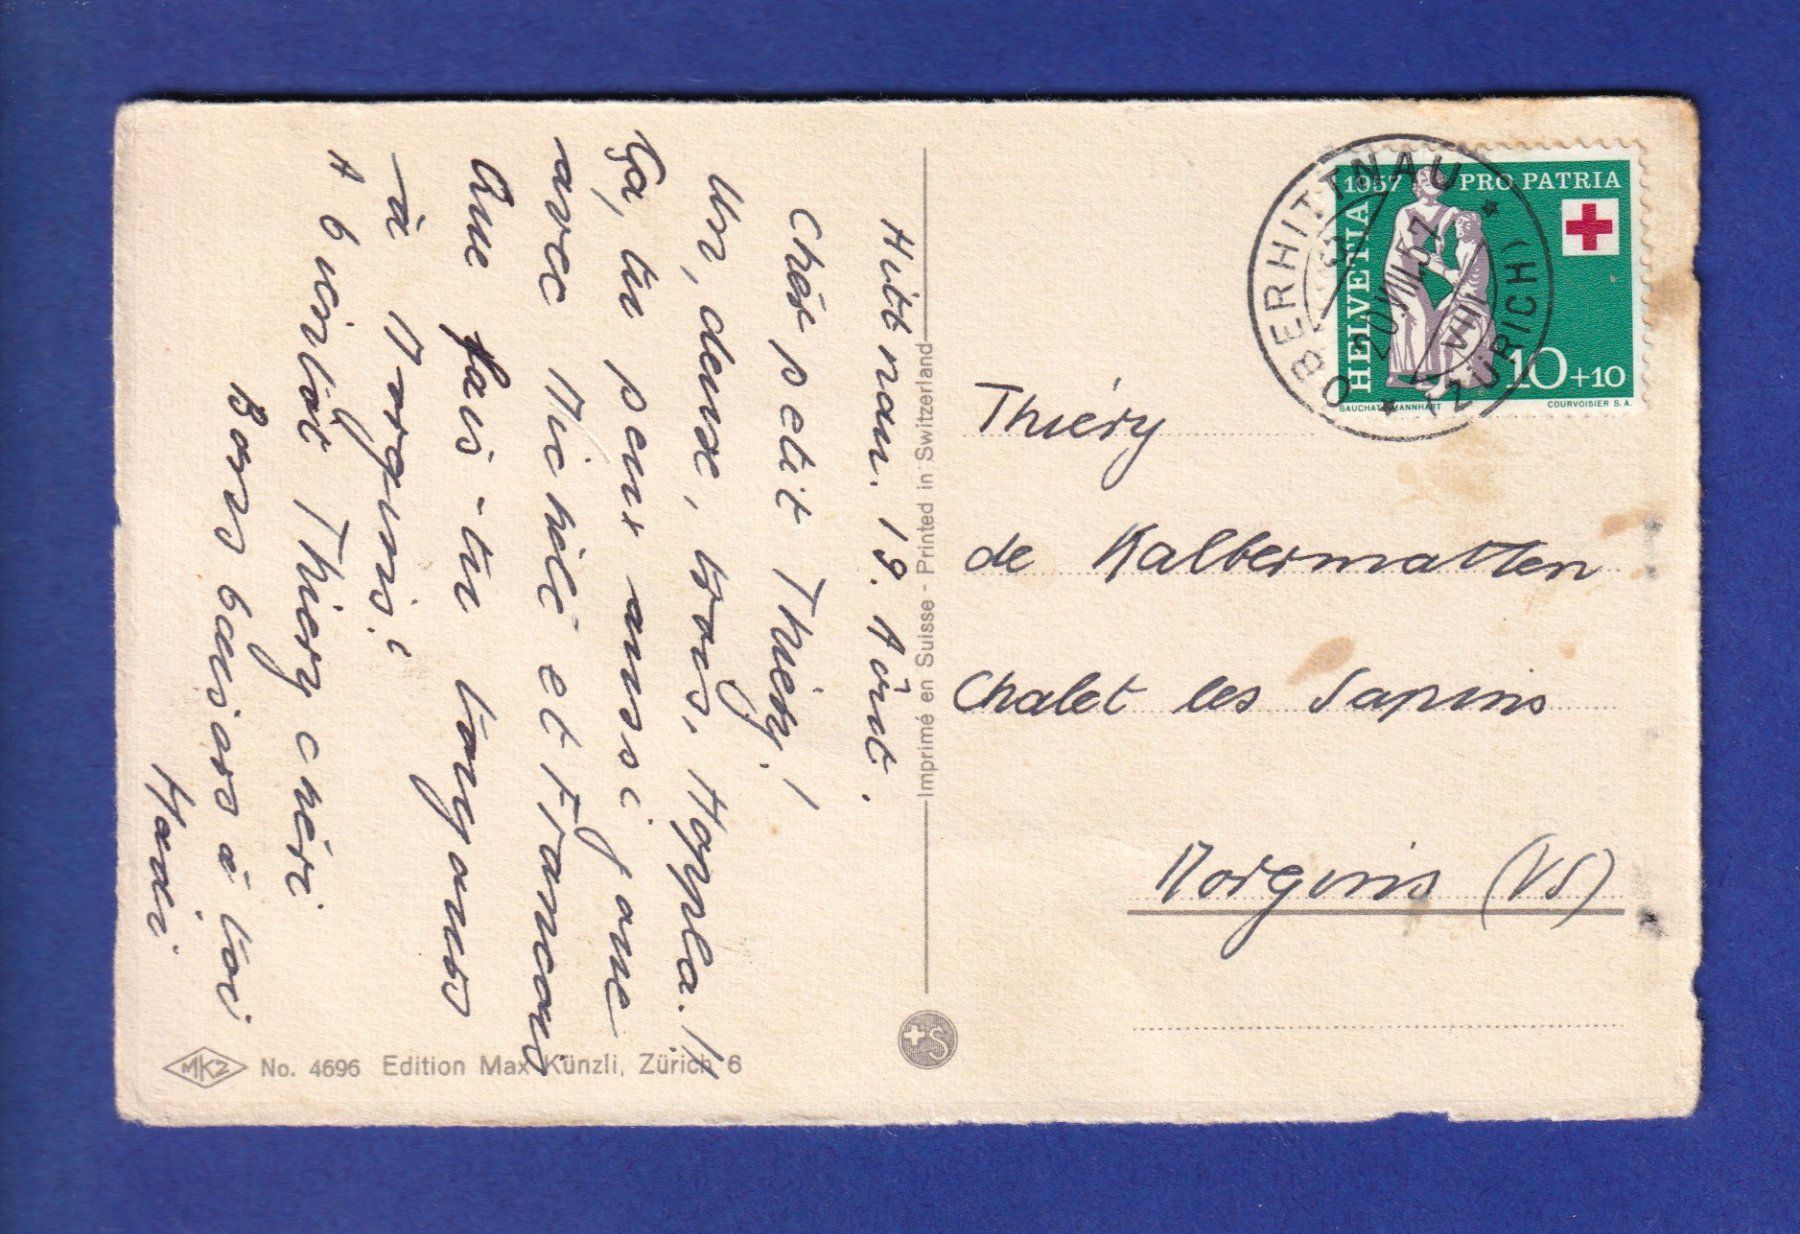 Hittnau. 19. Août.
Chér petit Thiéry!
Un, deux, trois, Hoppla!!
Ça, tu peux aussi faire
avec Michèle et Francois
Que fais-tu toujours
à Morgins?
A bientôt Thiery chéri
Bons baisers à toi
Haedi
Imprimé en Suisse - Printed in Switzerland
MKZ No. 4696 Edition Max Künzli, Zürich 6
S
1957 PRO PATRIA
HELVETIA
10+10
COURVOISIER S.A.
OBERHITTNAU
20.VIII.57
VIII
(ZÜRICH)
Thiéry
de Kalbermatten
Chalet les Sapins
Morgins (VS)